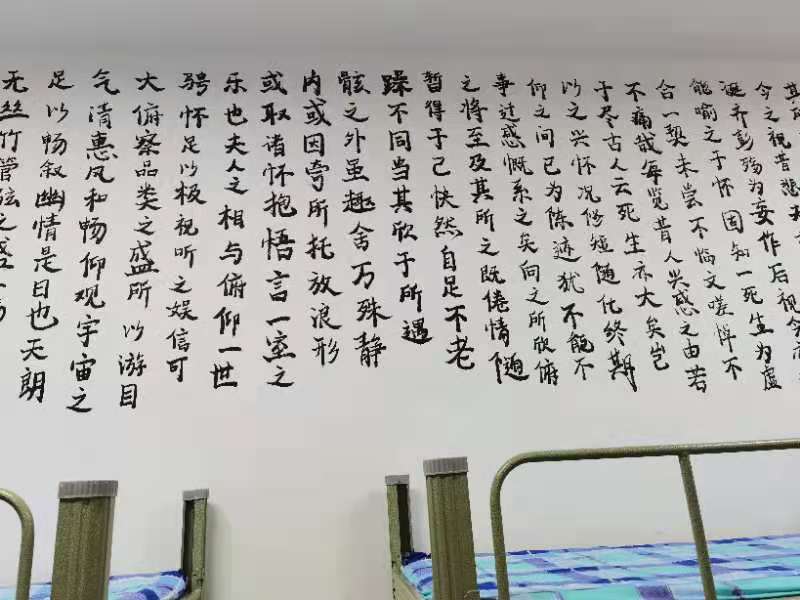 无丝竹管弦之盛一觞
足以畅叙幽情是日也天朗
气清惠风和畅仰观宇宙之
大俯察品类之盛所以游目
骋怀足以极视听之娱信可
乐也夫人之相与俯仰一世
或取诸怀抱悟言一室之
内或因寄所托放浪形
骸之外虽趣舍万殊静
躁不同当其欣于所遇
暂得于己快然自足不老
之将至及其所之既倦情随
事迁感慨系之矣向之所欣俯
仰之间已为陈迹犹不能不
以之兴怀况修短随化终期
于尽古人云死生亦大矣岂
不痛哉每览昔人兴感之由若
合一契未尝不临文嗟悼不
能喻之于怀固知一死生为虚
诞齐彭殇为妄作后视今亦
今之视昔悲夫
其